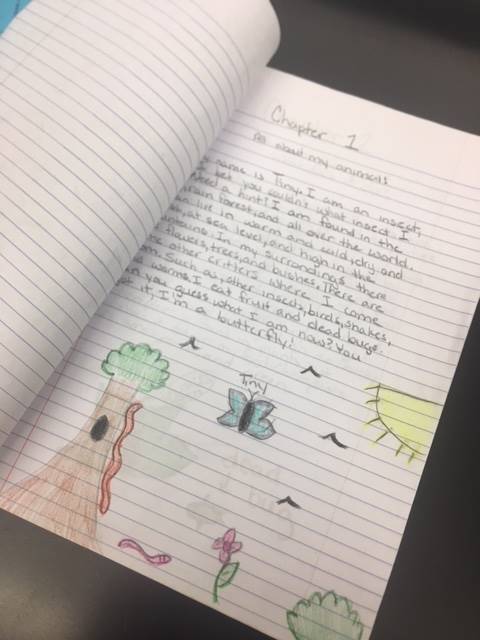 Chapter 1
All about my animal!
name is Tiny. I am an insect,
I bet you couldn't what insect I
need a hint! I am found in the
rain forest, and all over the world.
live in warm and cold, dry and
at sea level, and high in the
In my surrondings there
flowers, trees, and bushes. There are
other critters where I come
Such as, other insects, birds, snakes,
worms. I eat fruit and dead bugs.
you guess what I am now? You
it, I'm a butterfly!
Tiny